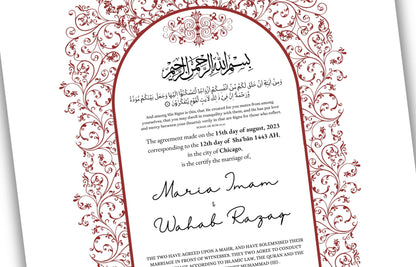 بِسْمِ اللهِ الرَّحْمٰنِ الرَّحِيْمِ
وَمِنْ آيَاتِهِ أَنْ خَلَقَ لَكُم مِّنْ أَنفُسِكُمْ أَزْوَاجًا لِّتَسْكُنُوا إِلَيْهَا وَجَعَلَ بَيْنَكُم مَّوَدَّةً
وَرَحْمَةً إِنَّ فِي ذَٰلِكَ لَآيَاتٍ لِّقَوْمٍ يَتَفَكَّرُونَ
And among His Signs is this, that He created for you mates from among
yourselves, that you may dwell in tranquility with them, and He has put love
and mercy between your (hearts): verily in that are Signs for those who reflect.
The agreement made on the 15th day of august, 2023
corresponding to the 12th day of Sha'bān 1443 AH.
in the city of Chicago,
is the certify the marriage of,
Maria Imam
&
Wahab Razaq
THE TWO HAVE AGREED UPON A MAHR, AND HAVE SOLEMNISED THEIR
MARRIAGE IN FRONT OF WITNESSES. THEY TWO AGREE TO CONDUCT
ACCORDING TO ISLAMIC LAW, THE QURAN AND THE
MUHAMMAD